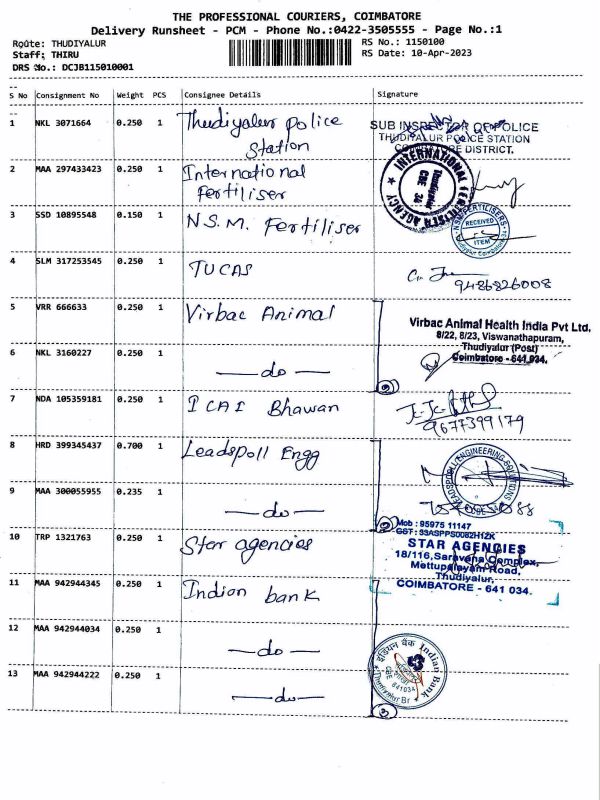 THE PROFESSIONAL COURIERS, COIMBATORE
Delivery Runsheet - PCM - Phone No.:0422-3505555 - Page No.:1
Route: THUDIYALUR RS No.: 1150100
Staff: THIRU RS Date: 10-Apr-2023
DRS No.: DCJB115010001
S No Consignment No Weight PCS Consignee Details Signature
1 NKL 3071664 0.250 1 Thudiyalur police
Station
SUB INSPECTOR OF POLICE
THUDIYALUR POLICE STATION
COIMBATORE DISTRICT.
2 MAA 297433423 0.250 1 International
Fertiliser
INTERNATIONAL FERTILISER AGENCY
Thudiyalur
CBE 34
3 SSD 10895548 0.150 1 N.S.M. Fertiliser
RECEIVED
ITEM
4 SLM 317253545 0.250 1 TUCAS
9486826008
5 VRR 666633 0.250 1 Virbac Animal
Virbac Animal Health India Pvt Ltd.
8/22, 8/23, Viswanathapuram,
Thudiyalur (Post)
Coimbatore - 641 034.
6 NKL 3160227 0.250 1 —do—
7 NDA 105359181 0.250 1 ICAI Bhawan
9677399179
8 HRD 399345437 0.700 1 Leadspoll Engg
LEADSPOLL ENGINEERING SOLUTIONS
9 MAA 300055955 0.235 1 —do—
10 TRP 1321763 0.250 1 Star agencies
Mob : 95975 11147
STAR AGENCIES
18/116, Saravana Complex,
Mettupalayam Road,
Thudiyalur,
COIMBATORE - 641 034.
11 MAA 942944345 0.250 1 Indian bank
12 MAA 942944034 0.250 1 —do—
13 MAA 942944222 0.250 1 —do—
इंडियन बैंक Indian Bank
CBE 641034
Thudiyalur Br